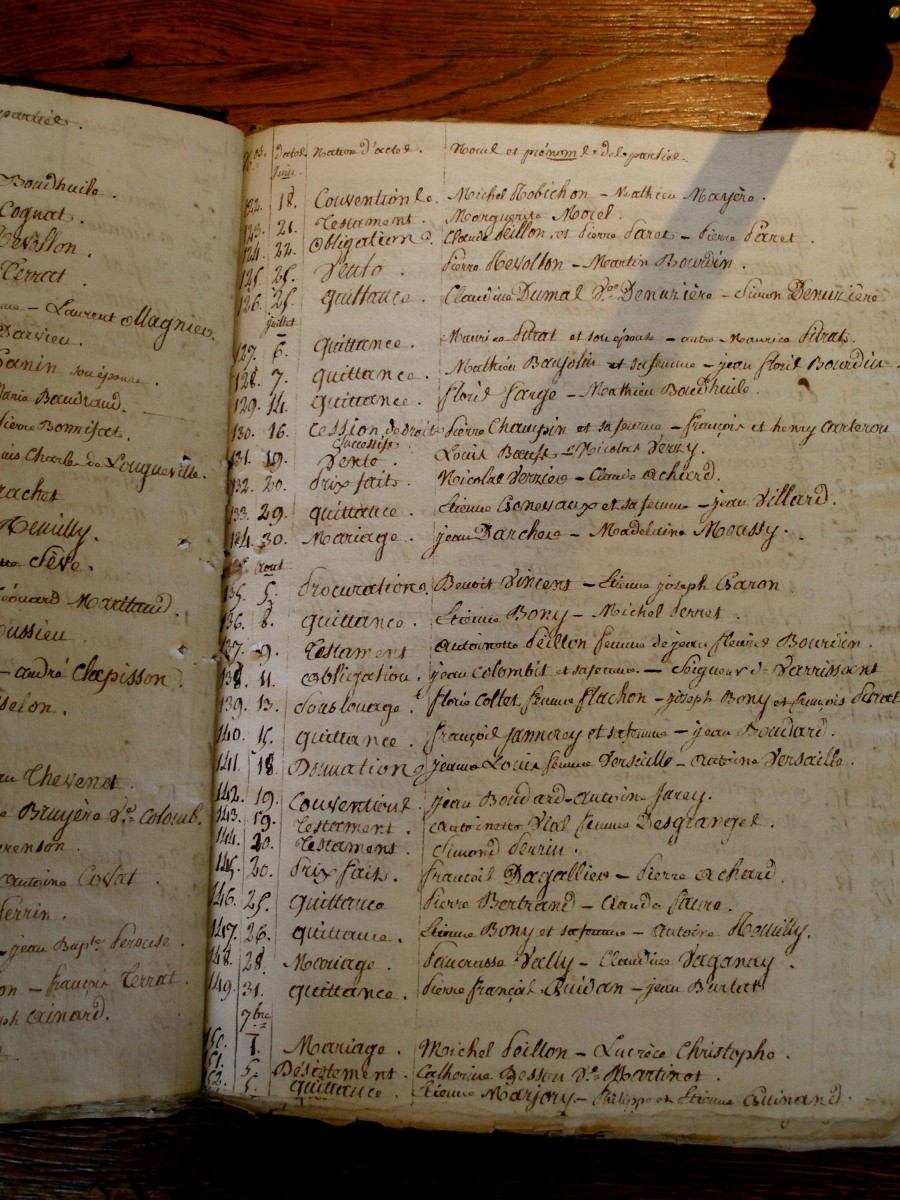 parties.
Boudhuile.
Cognat.
Revollon.
Terrat.
– Laurent Magnien.
Darvieu.
Janin son épouse.
Marie Baudrand.
Pierre Bonnefat.
Charle de Longueville.
rachet
Neuilly.
Sève.
Edouard Maillaud.
oussieu
– andré Chapisson.
selon.
Thevenet.
Bruyère Ve. Colomb.
erenson.
antoine Covat.
Perrin.
– jean Bapte. Perouse.
on – françois Terrat.
ph ainard.
Nos. dates Nature d'actes. Noms et prénoms des parties.
Juin.
122. 18. Conventions. Michel Robichon – Mathieu Mayère.
123. 21. Testament. Marguerite Morel.
124. 22. Obligation. Claude Peillon et Pierre Paret – Pierre Paret.
125. 25. Vente. Pierre Revollon – Martin Bourdin.
126. 25. Quittance. Claudine Dumas Ve. Denuzière – Simon Denuzière
Juillet
127. 6. Quittance. Maurice Pitrat et son épouse – autre Maurice Pitrat.
128. 7. Quittance. Mathieu Baujolin et sa femme – jean floris Bourdin.
129. 14. Quittance. floris farge – Mathieu Boudhuile.
130. 16. Cession de droits Pierre Chaupin et sa femme – françois et henry Carteron
successifs
131. 19. Vente. Louis – Nicolas
132. 20. Prix faits. Nicolas – Claude Achard.
133. 29. Quittance. Etienne et sa femme – jean Villard.
134. 30. Mariage. jean Darchere – Madeleine Moussy.
Aout
135. 5. Procuration. Benoit Vincent – Etienne joseph Caron
136. 8. Quittance. Etienne Bony – Michel Perret.
137. 9. Testament antoinette Peillon femme de jean fleuris Bourdin.
138. 11. Obligation. jean Colombet et sa femme. – Seigneur de Varrissant
139. 13. Souslouage. floris Collet femme flachon – joseph Bony et françois Pitrat
140. 15. Quittance. françois jannerey et sa femme – jean Boudard.
141. 18. Donation jeanne Louis femme Versaille – antoine Versaille.
142. 19. Conventions. jean Boudard – antoine jarey.
143. 19. Testament. antoinette Vial femme Desgranges.
144. 20. Testament. Simond Perrin.
145. 20. Prix faits. françois Dagallier – Pierre Achard.
146. 25. Quittance Pierre Bertrand – Claude favre.
147. 26. Quittance. Etienne Bony et sa femme – antoine Neuilly.
148. 28. Mariage. Pancrasse Vally – Claudine Vaganay.
149. 31. Quittance. Pierre françois Guidan – jean Burlat
7bre
150. 1. Mariage. Michel Peillon – Lucrèce Christophe.
51. 5. Désistement. Catherine Besson Ve. Martinot.
52. 5. Quittance. Etienne Marjory – Philippe et Etienne Guinand.